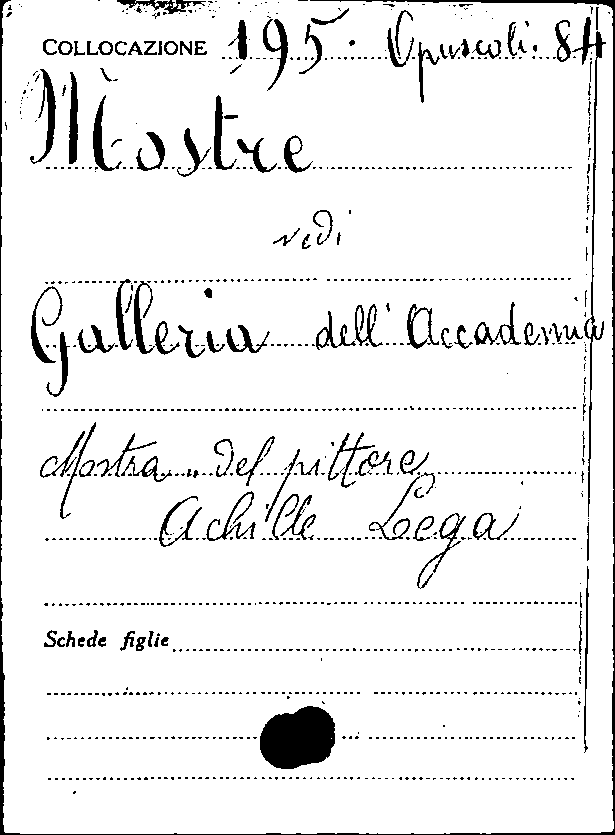 COLLOCAZIONE 195. Opuscoli. 84
Mostre
vedi
Galleria dell' Accademia
Mostra .. del pittore
Achille Lega
Schede figlie